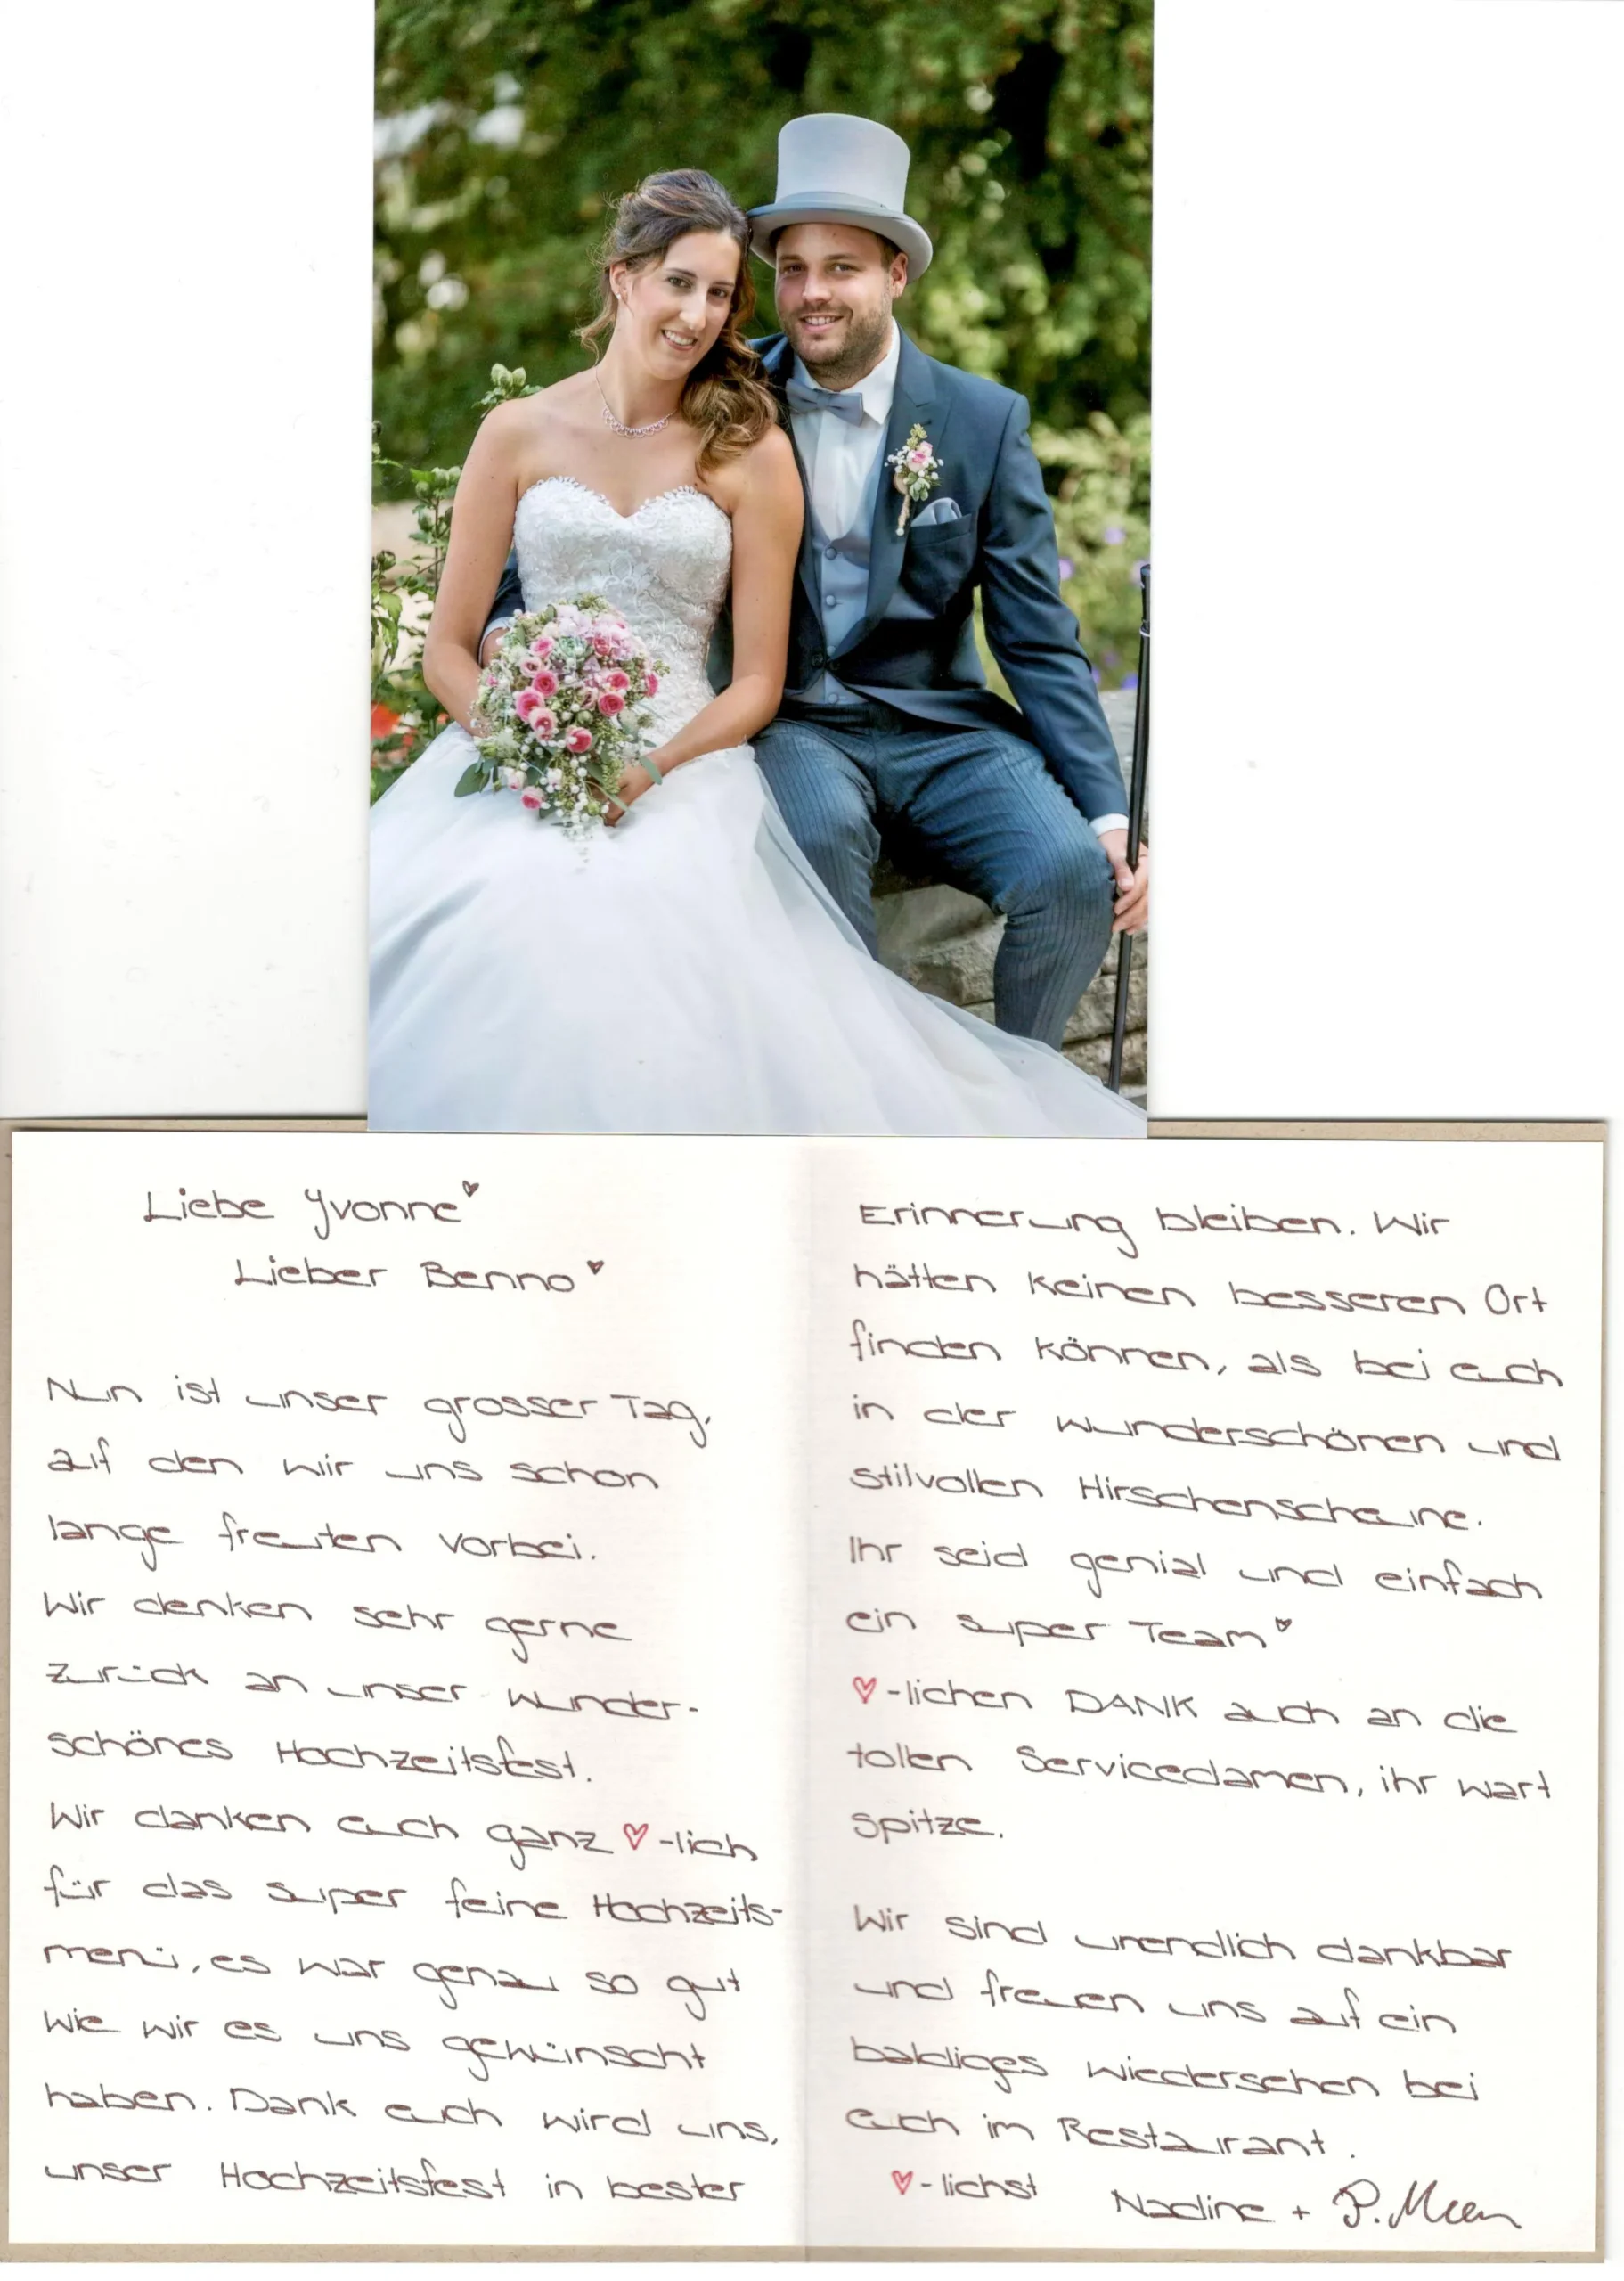 Liebe Yvonne♥
Lieber Benno♥
Nun ist unser grosser Tag,
auf den wir uns schon
lange freuten vorbei.
Wir denken sehr gerne
zurück an unser wunder-
schönes Hochzeitsfest.
Wir danken euch ganz ♥-lich
für das super feine Hochzeits-
menü, es war genau so gut
wie wir es uns gewünscht
haben. Dank euch wird uns,
unser Hochzeitsfest in bester
Erinnerung bleiben. Wir
hätten keinen besseren Ort
finden können, als bei euch
in der wunderschönen und
stilvollen Hirschenscheune.
Ihr seid genial und einfach
ein super Team♥
♥-lichen DANK auch an die
tollen Servicedamen, ihr wart
spitze.
Wir sind unendlich dankbar
und freuen uns auf ein
baldiges wiedersehen bei
euch im Restaurant.
♥-lichst Nadine + P.